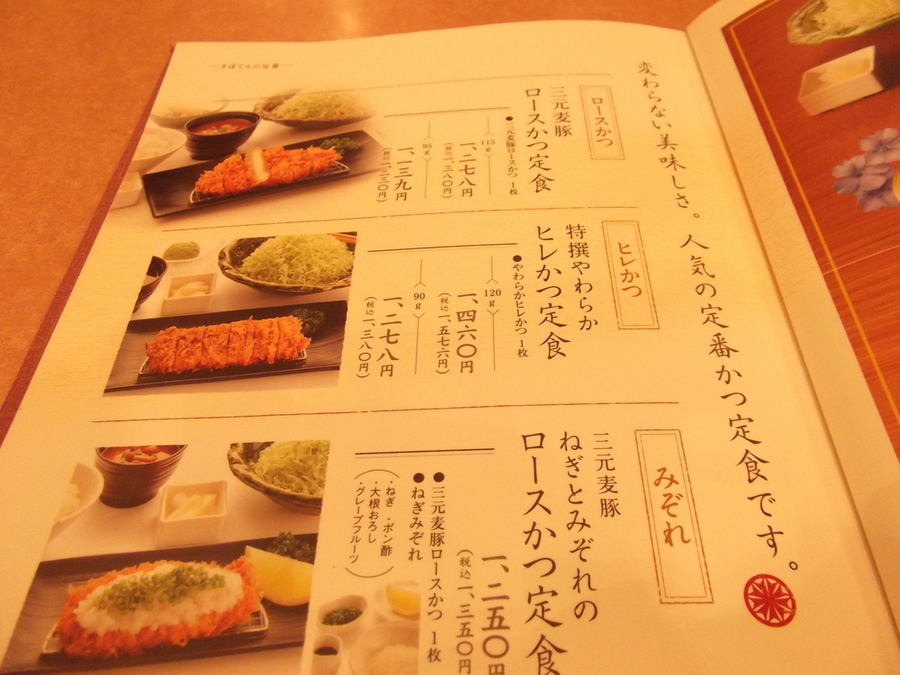 変わらない美味しさ。人気の定番かつ定食です。
さぼてんの定番
ロースかつ
三元麦豚
ロースかつ定食
●三元麦豚ロースかつ 1枚
115g
一、二七八円
(税込一、三八〇円)
95g
一、一三九円
(税込一、二三〇円)
ヒレかつ
特撰やわらか
ヒレかつ定食
●やわらかヒレかつ 1枚
120g
一、四六〇円
(税込一、五七六円)
90g
一、二七八円
(税込一、三八〇円)
みぞれ
三元麦豚
ねぎとみぞれの
ロースかつ定食
一、二五〇円
(税込一、三五〇円
●三元麦豚ロースかつ 1枚
●ねぎみぞれ
(・ねぎ ・ポン酢
・大根おろし
・グレープフルーツ)